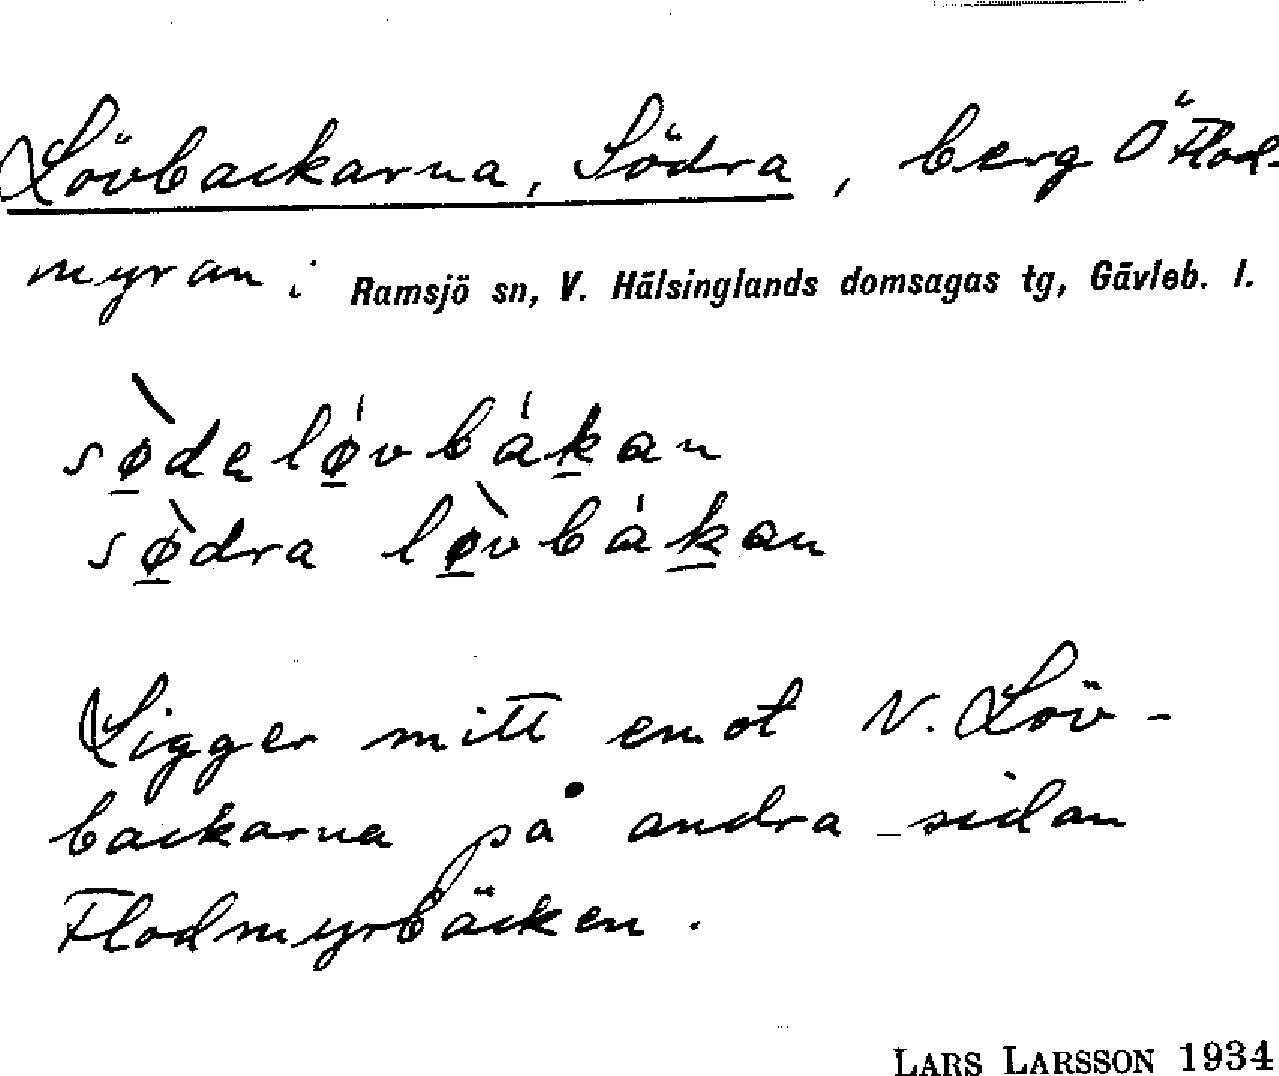 Lövbackarna, Södra, berg Ö Flod-
myran i Ramsjö sn, V. Hälsinglands domsagas tg, Gävleb. l.
sø̲̀dęlǿ̲vbák̲an
sø̲̀dra lø̲̀vbák̲an
Ligger mitt emot N. Löv-
backarna på andra sidan
Flodmyrbäcken.
LARS LARSSON 1934